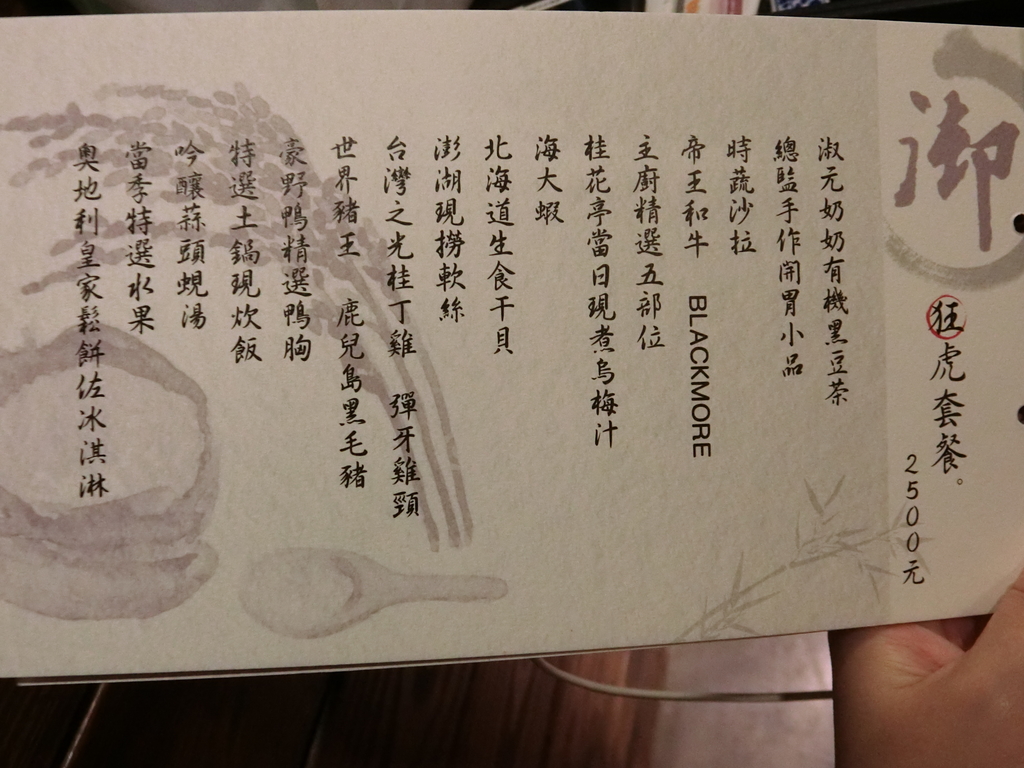 御
狂虎套餐。
2500元
淑元奶奶有機黑豆茶
總監手作開胃小品
時蔬沙拉
帝王和牛 BLACKMORE
主廚精選五部位
桂花亭當日現煮烏梅汁
海大蝦
北海道生食干貝
澎湖現撈軟絲
台灣之光桂丁雞 彈牙雞頸
世界豬王 鹿兒島黑毛豬
豪野鴨精選鴨胸
特選土鍋現炊飯
吟釀蒜頭蜆湯
當季特選水果
奧地利皇家鬆餅佐冰淇淋